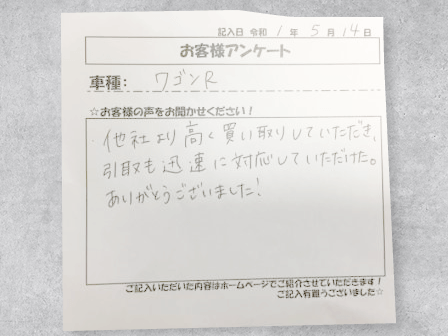 記入日 令和 1 年 5 月 14 日
お客様アンケート
車種: ワゴンR
☆お客様の声をお聞かせください！
他社より高く買い取りしていただき、
引取も迅速に対応していただけた。
ありがとうございました!
ご記入いただいた内容はホームページでご紹介させていただきます！
ご記入有難うございました☆